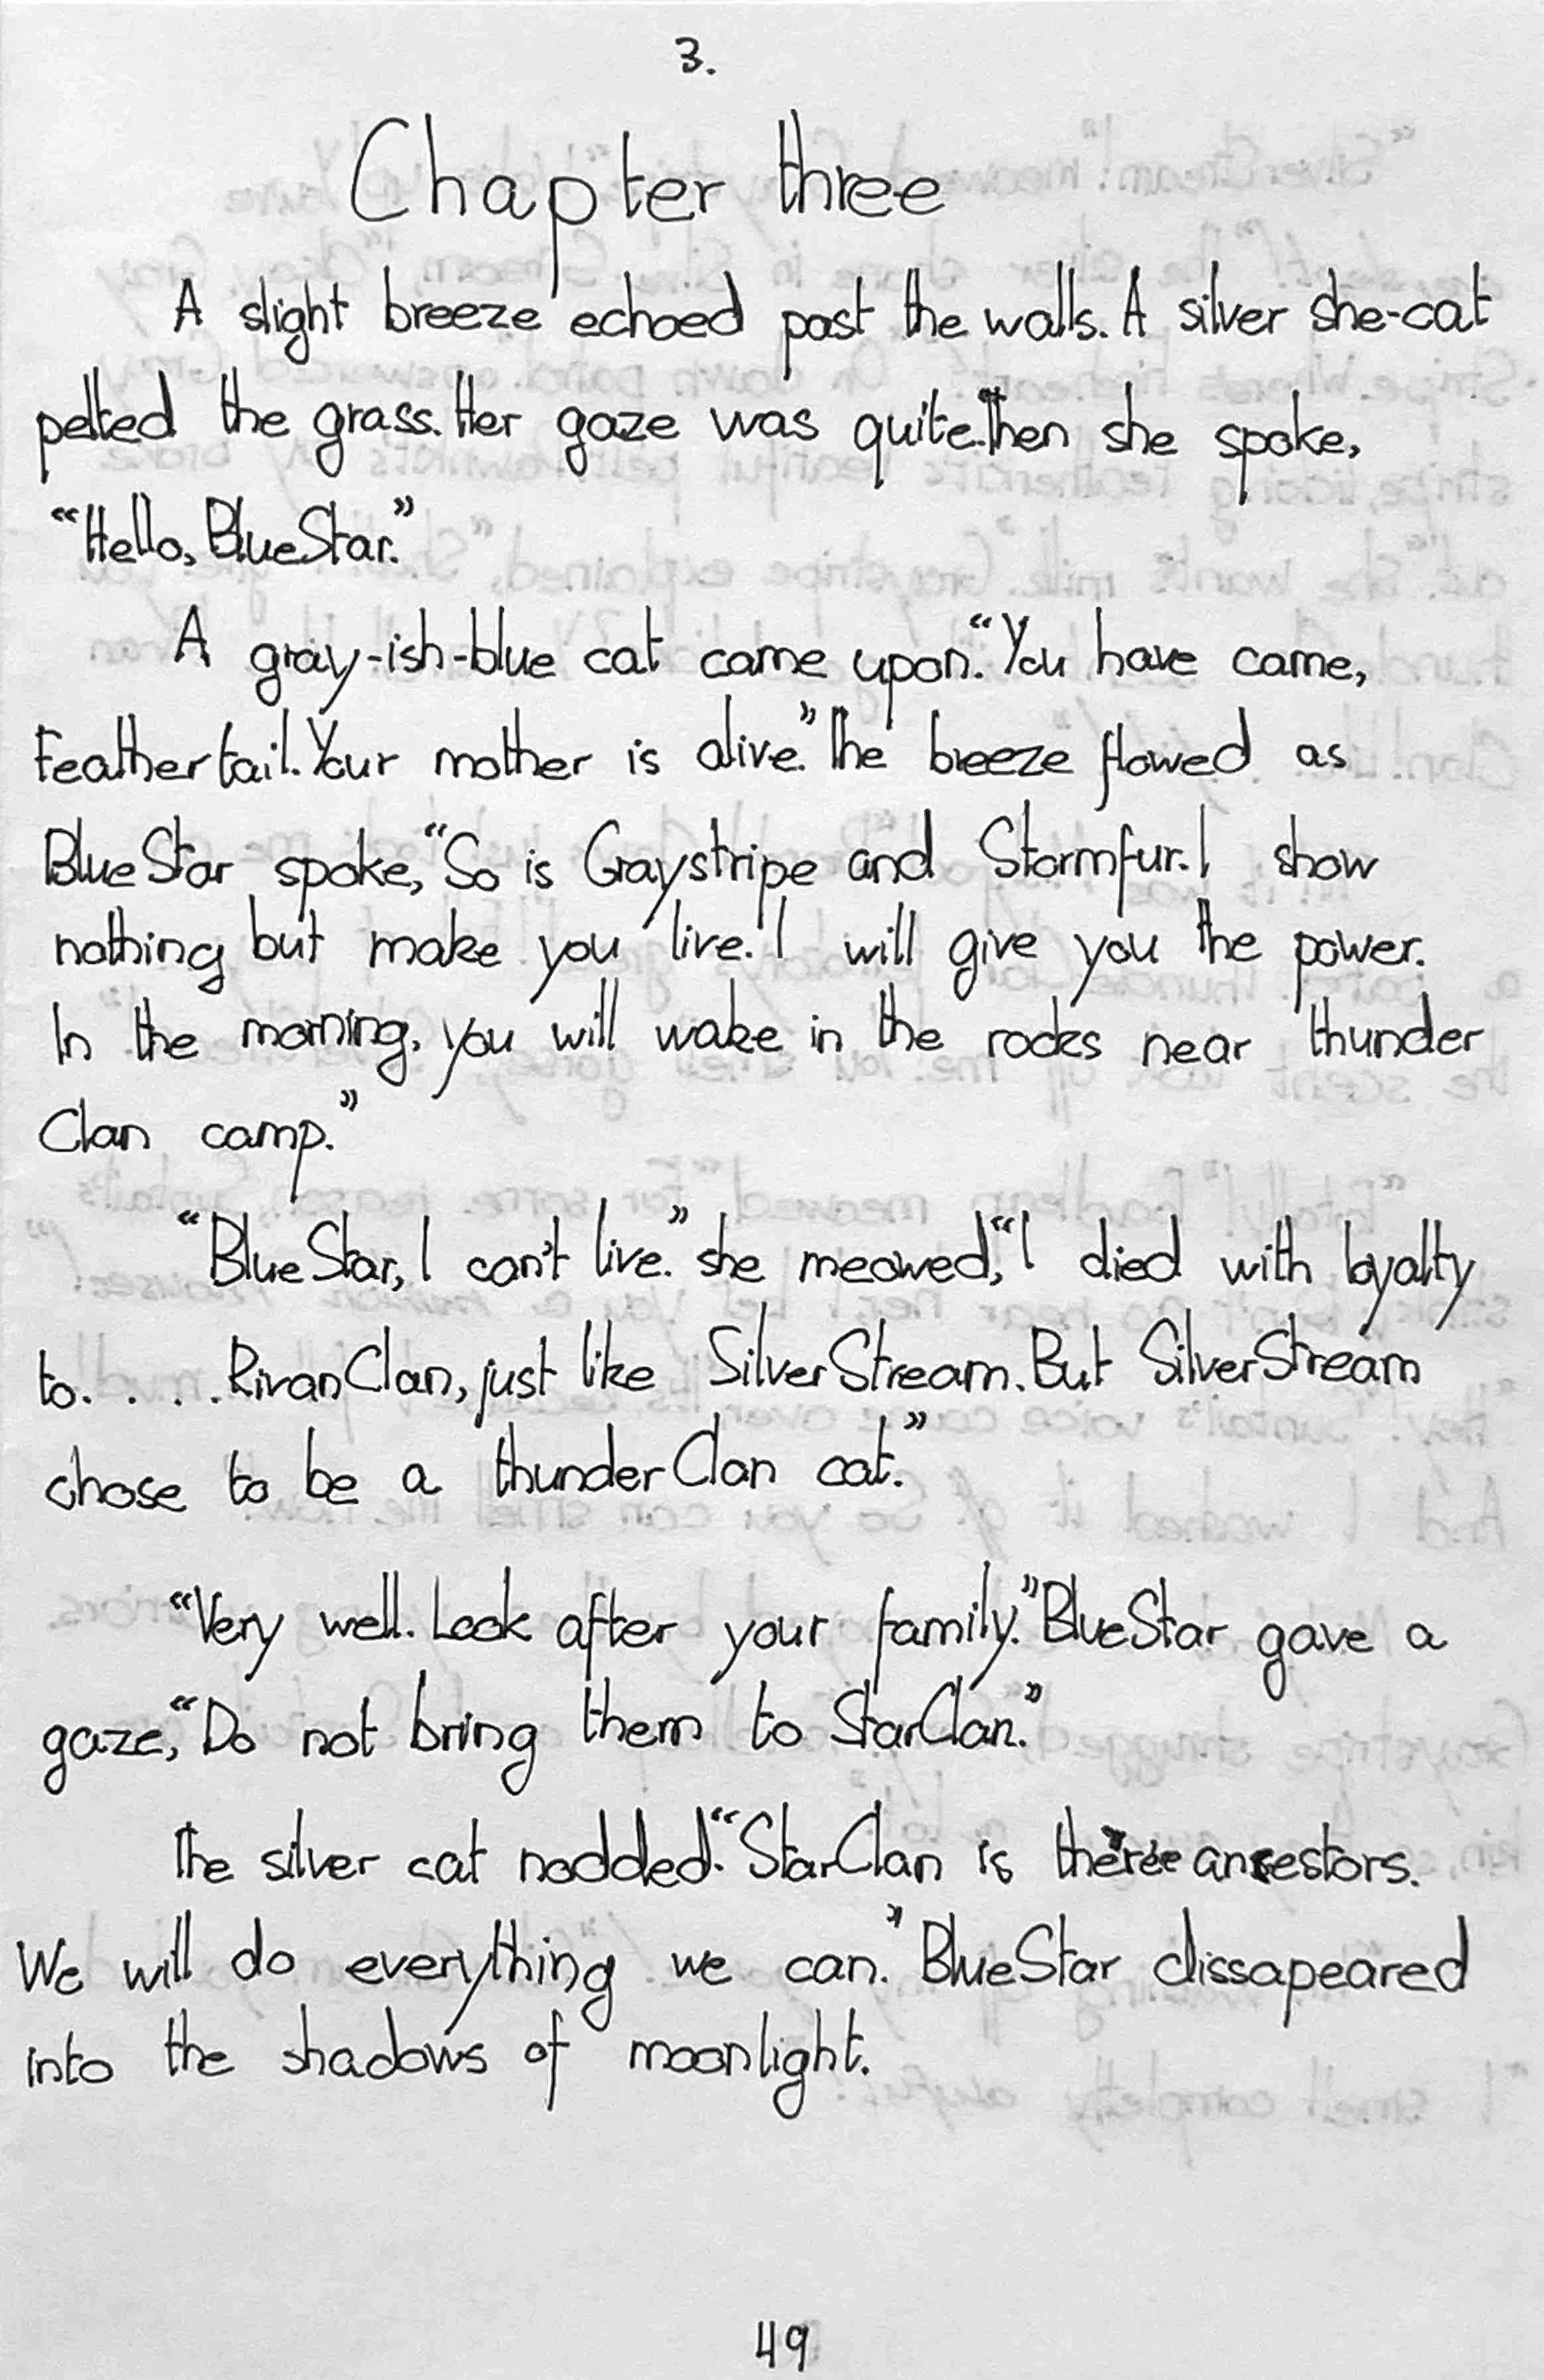 3.
Chapter three
A slight breeze echoed past the walls. A silver she-cat
pelted the grass. Her gaze was quite. Then she spoke,
“Hello, BlueStar.”
A gray-ish-blue cat came upon. “You have came,
Feathertail. Your mother is alive.” The breeze flowed as
BlueStar spoke, “So is Graystripe and Stormfur. I show
nothing but make you live. I will give you the power.
In the morning, you will wake in the rocks near thunder
Clan camp.”
“BlueStar, I can't live.” she meowed, “I died with loyalty
to. . . . RivanClan, just like SilverStream. But SilverStream
chose to be a thunderClan cat.”
“Very well. Look after your family.” BlueStar gave a
gaze, “Do not bring them to StarClan.”
The silver cat nodded. “StarClan is ancestors.
We will do everything we can.” BlueStar dissapeared
into the shadows of moonlight.
49